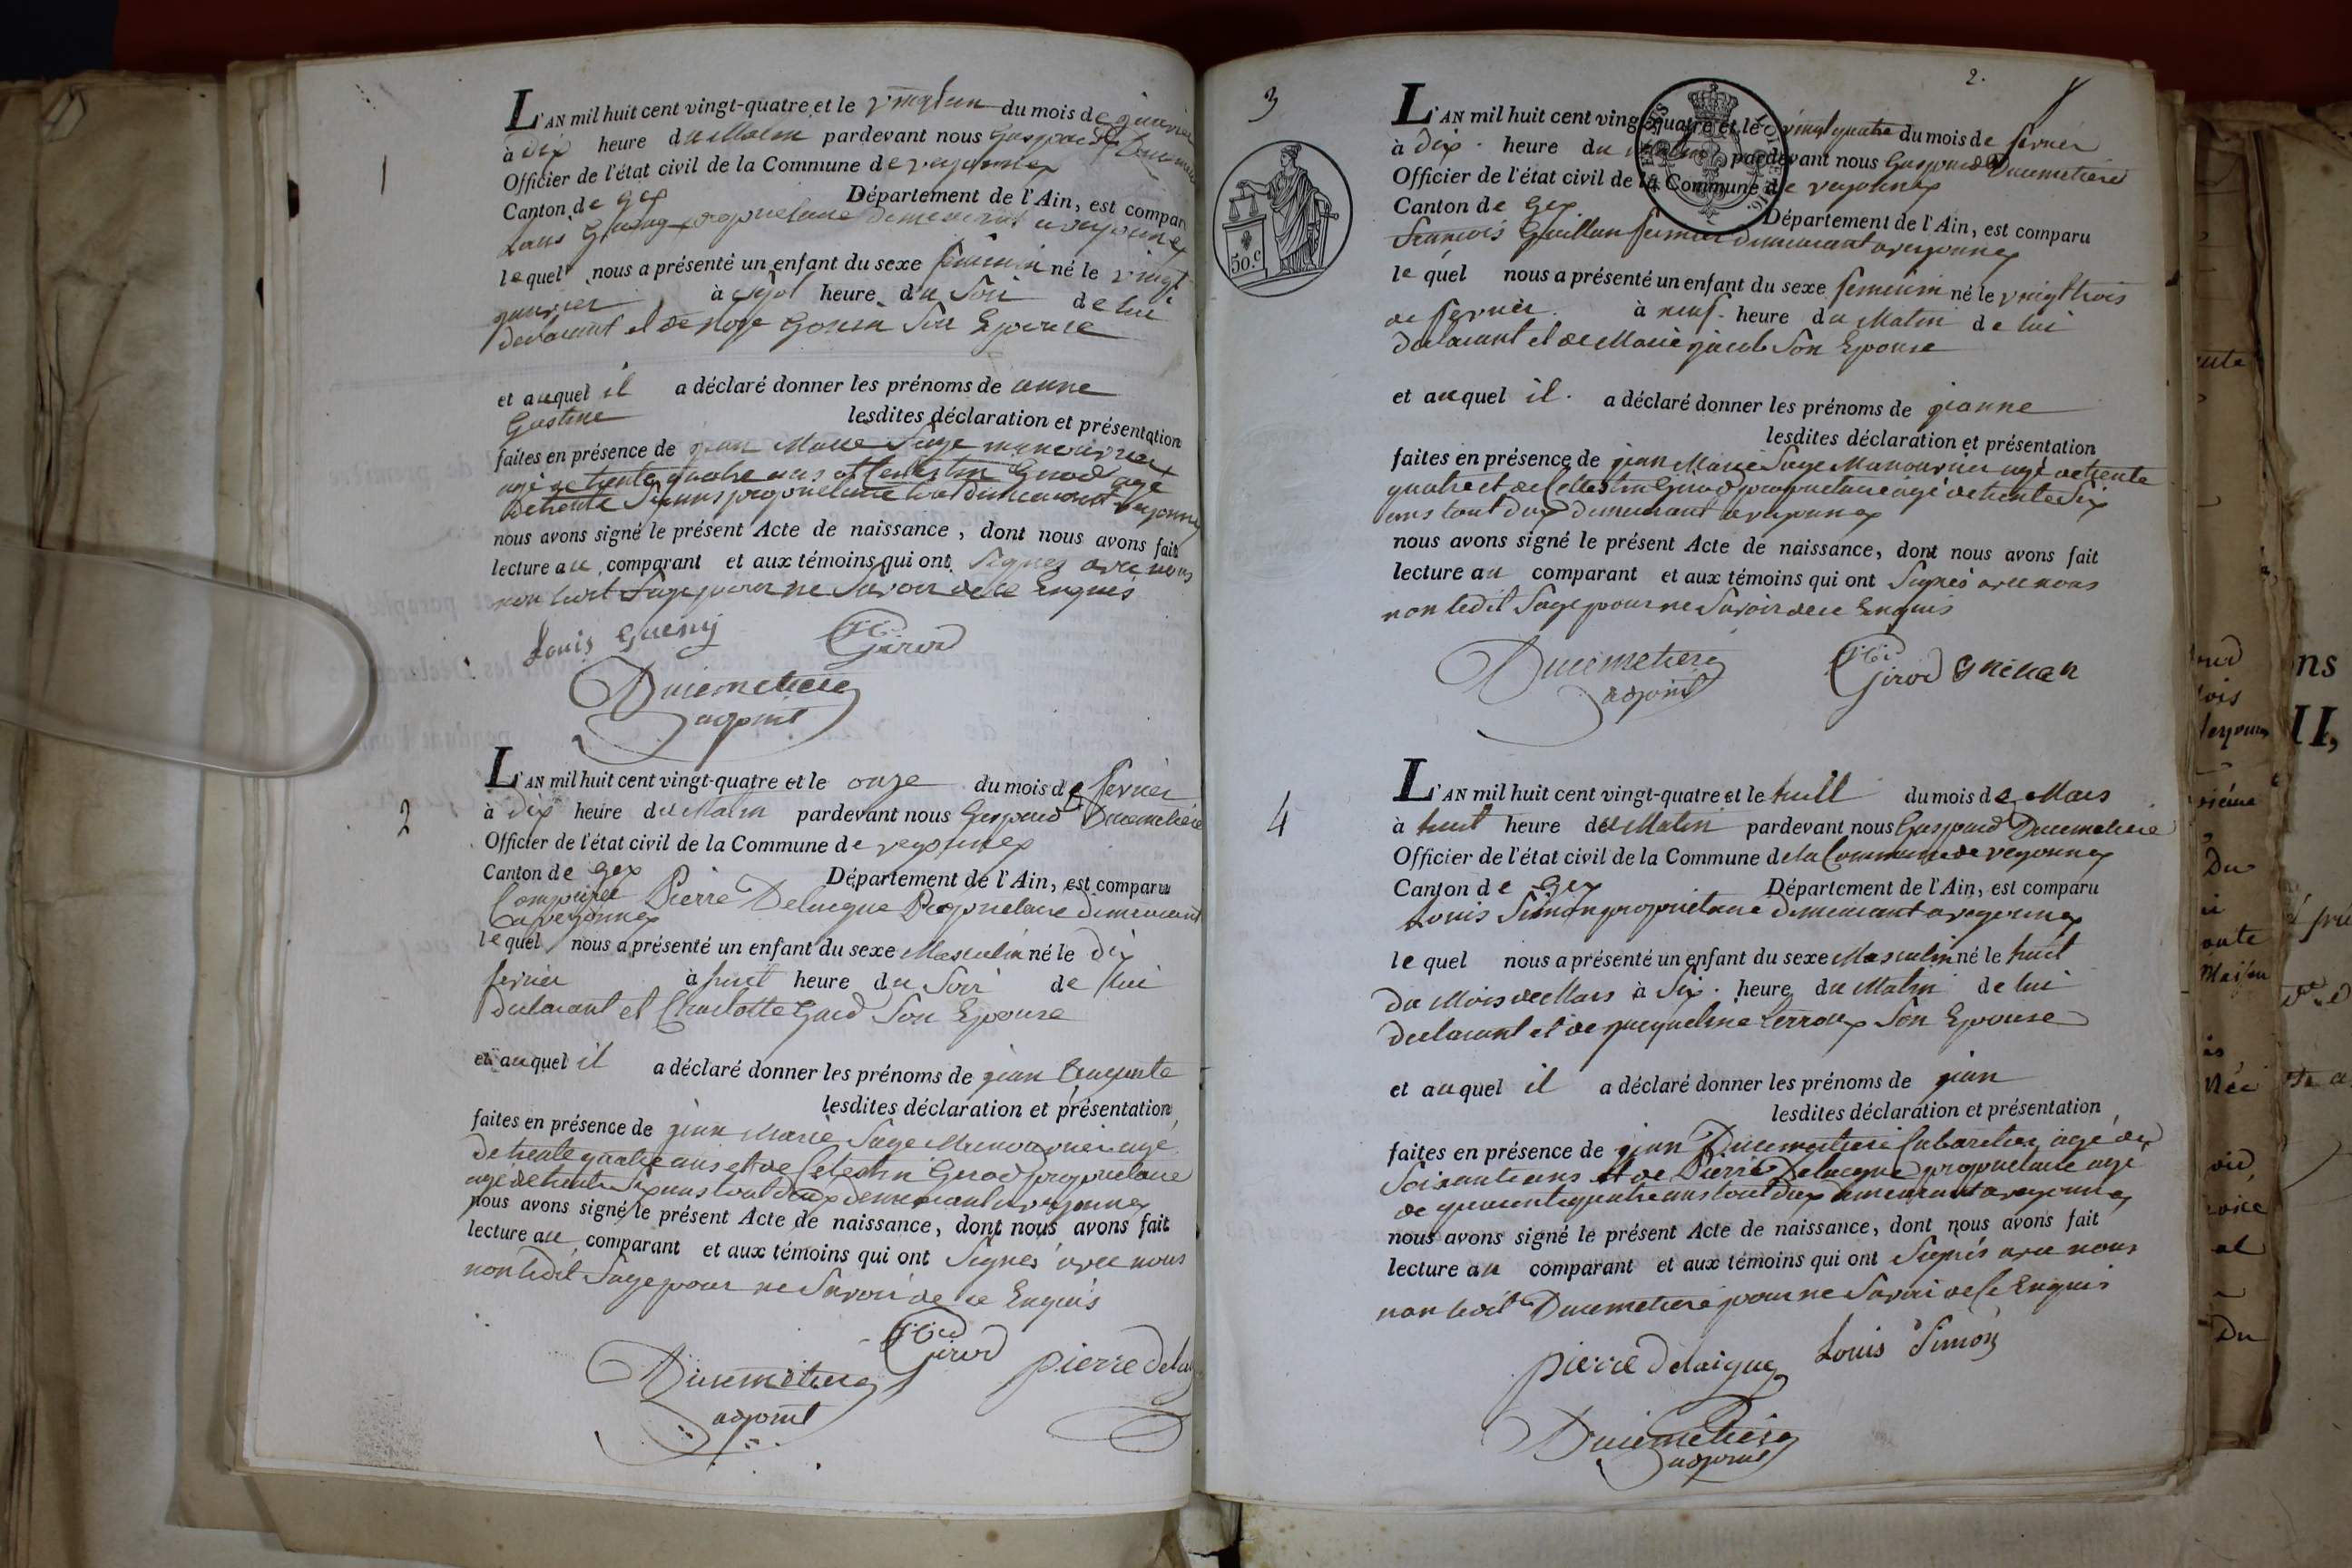 1
L'AN mil huit cent vingt-quatre et le vingt un du mois de janvier
à dix heure du Matin pardevant nous Gaspard
Officier de l'état civil de la Commune de veyonnex
Canton de Gex Département de l'Ain, est comparu
Louis proprietaire demeurant a veyonnex
lequel nous a présenté un enfant du sexe feminin né le vingt
janvier à heure du Soir de lui
declarant et de Son Epouse
et auquel il a déclaré donner les prénoms de anne
Gustine lesdites déclaration et présentation
faites en présence de jean Marie Sage manouvrier
agé de trente quatre ans et Celestin Girod agé
de trente Six ans proprietaire tout demeurant veyonnex
nous avons signé le présent Acte de naissance, dont nous avons fait
lecture au comparant et aux témoins qui ont Signés avec nous
non ledit Sage pour ne Savoir de ce Enquis
Louis Gueny Girod
Ducimetiere
adjoint
2
L'AN mil huit cent vingt-quatre et le onze du mois de fevrier
à dix heure du Matin pardevant nous Gaspard Ducimetiere
Officier de l'état civil de la Commune de veyonnex
Canton de Gex Département de l'Ain, est comparu
Comparu Pierre Delaigue Proprietaire demeurant
a veyonnex
lequel nous a présenté un enfant du sexe Masculin né le dix
fevrier à huit heure du Soir de lui
declarant et Charlotte Son Epouse
et auquel il a déclaré donner les prénoms de jean
lesdites déclaration et présentation
faites en présence de jean Marie Sage Manouvrier agé
de trente quatre ans et de Celestin Girod proprietaire
agé de trente Six ans tout deux demeurant a veyonnex
nous avons signé le présent Acte de naissance, dont nous avons fait
lecture au comparant et aux témoins qui ont Signés avec nous
non ledit Sage pour ne Savoir de ce Enquis
Girod
Ducimetiere pierre
adjoint
2.
3
L'AN mil huit cent vingt-quatre et le vingt quatre du mois de fevrier
à dix heure du matin pardevant nous Gaspard Ducimetiere
Officier de l'état civil de la Commune de veyonnex
Canton de Gex Département de l'Ain, est comparu
50.c
francois fermier demeurant a veyonnex
lequel nous a présenté un enfant du sexe femenin né le vingt trois
de fevrier à neuf heure du Matin de lui
declarant et de Marie jacob Son Epouse
et auquel il a déclaré donner les prénoms de jeanne
lesdites déclaration et présentation
faites en présence de jean Marie Sage Manouvrier agé de trente
quatre et de Celestin Girod proprietaire agé de trente Six
ans tout deux demeurant a veyonnex
nous avons signé le présent Acte de naissance, dont nous avons fait
lecture au comparant et aux témoins qui ont Signés avec nous
non ledit Sage pour ne Savoir de ce Enquis
Ducimetiere Girod
adjoint
4
L'AN mil huit cent vingt-quatre et le huit du mois de Mars
à huit heure du Matin pardevant nous Gaspard Ducimetiere
Officier de l'état civil de la Commune de la Commune de veyonnex
Canton de Gex Département de l'Ain, est comparu
Louis Simon proprietaire demeurant a veyonnex
lequel nous a présenté un enfant du sexe Masculin né le huit
du Mois de Mars à Six heure du Matin de lui
declarant et de jacqueline Son Epouse
et auquel il a déclaré donner les prénoms de jean
lesdites déclaration et présentation
faites en présence de jean Ducimetiere Cabaretier agé de
Soixante ans et de Pierre Delaigue proprietaire agé
de quarente quatre ans tout deux demeurant a veyonnex
nous avons signé le présent Acte de naissance, dont nous avons fait
lecture au comparant et aux témoins qui ont Signés avec nous
non ledit Ducimetiere pour ne Savoir de Ce Enquis
pierre Delaigue Louis Simon
Ducimetiere
adjoint